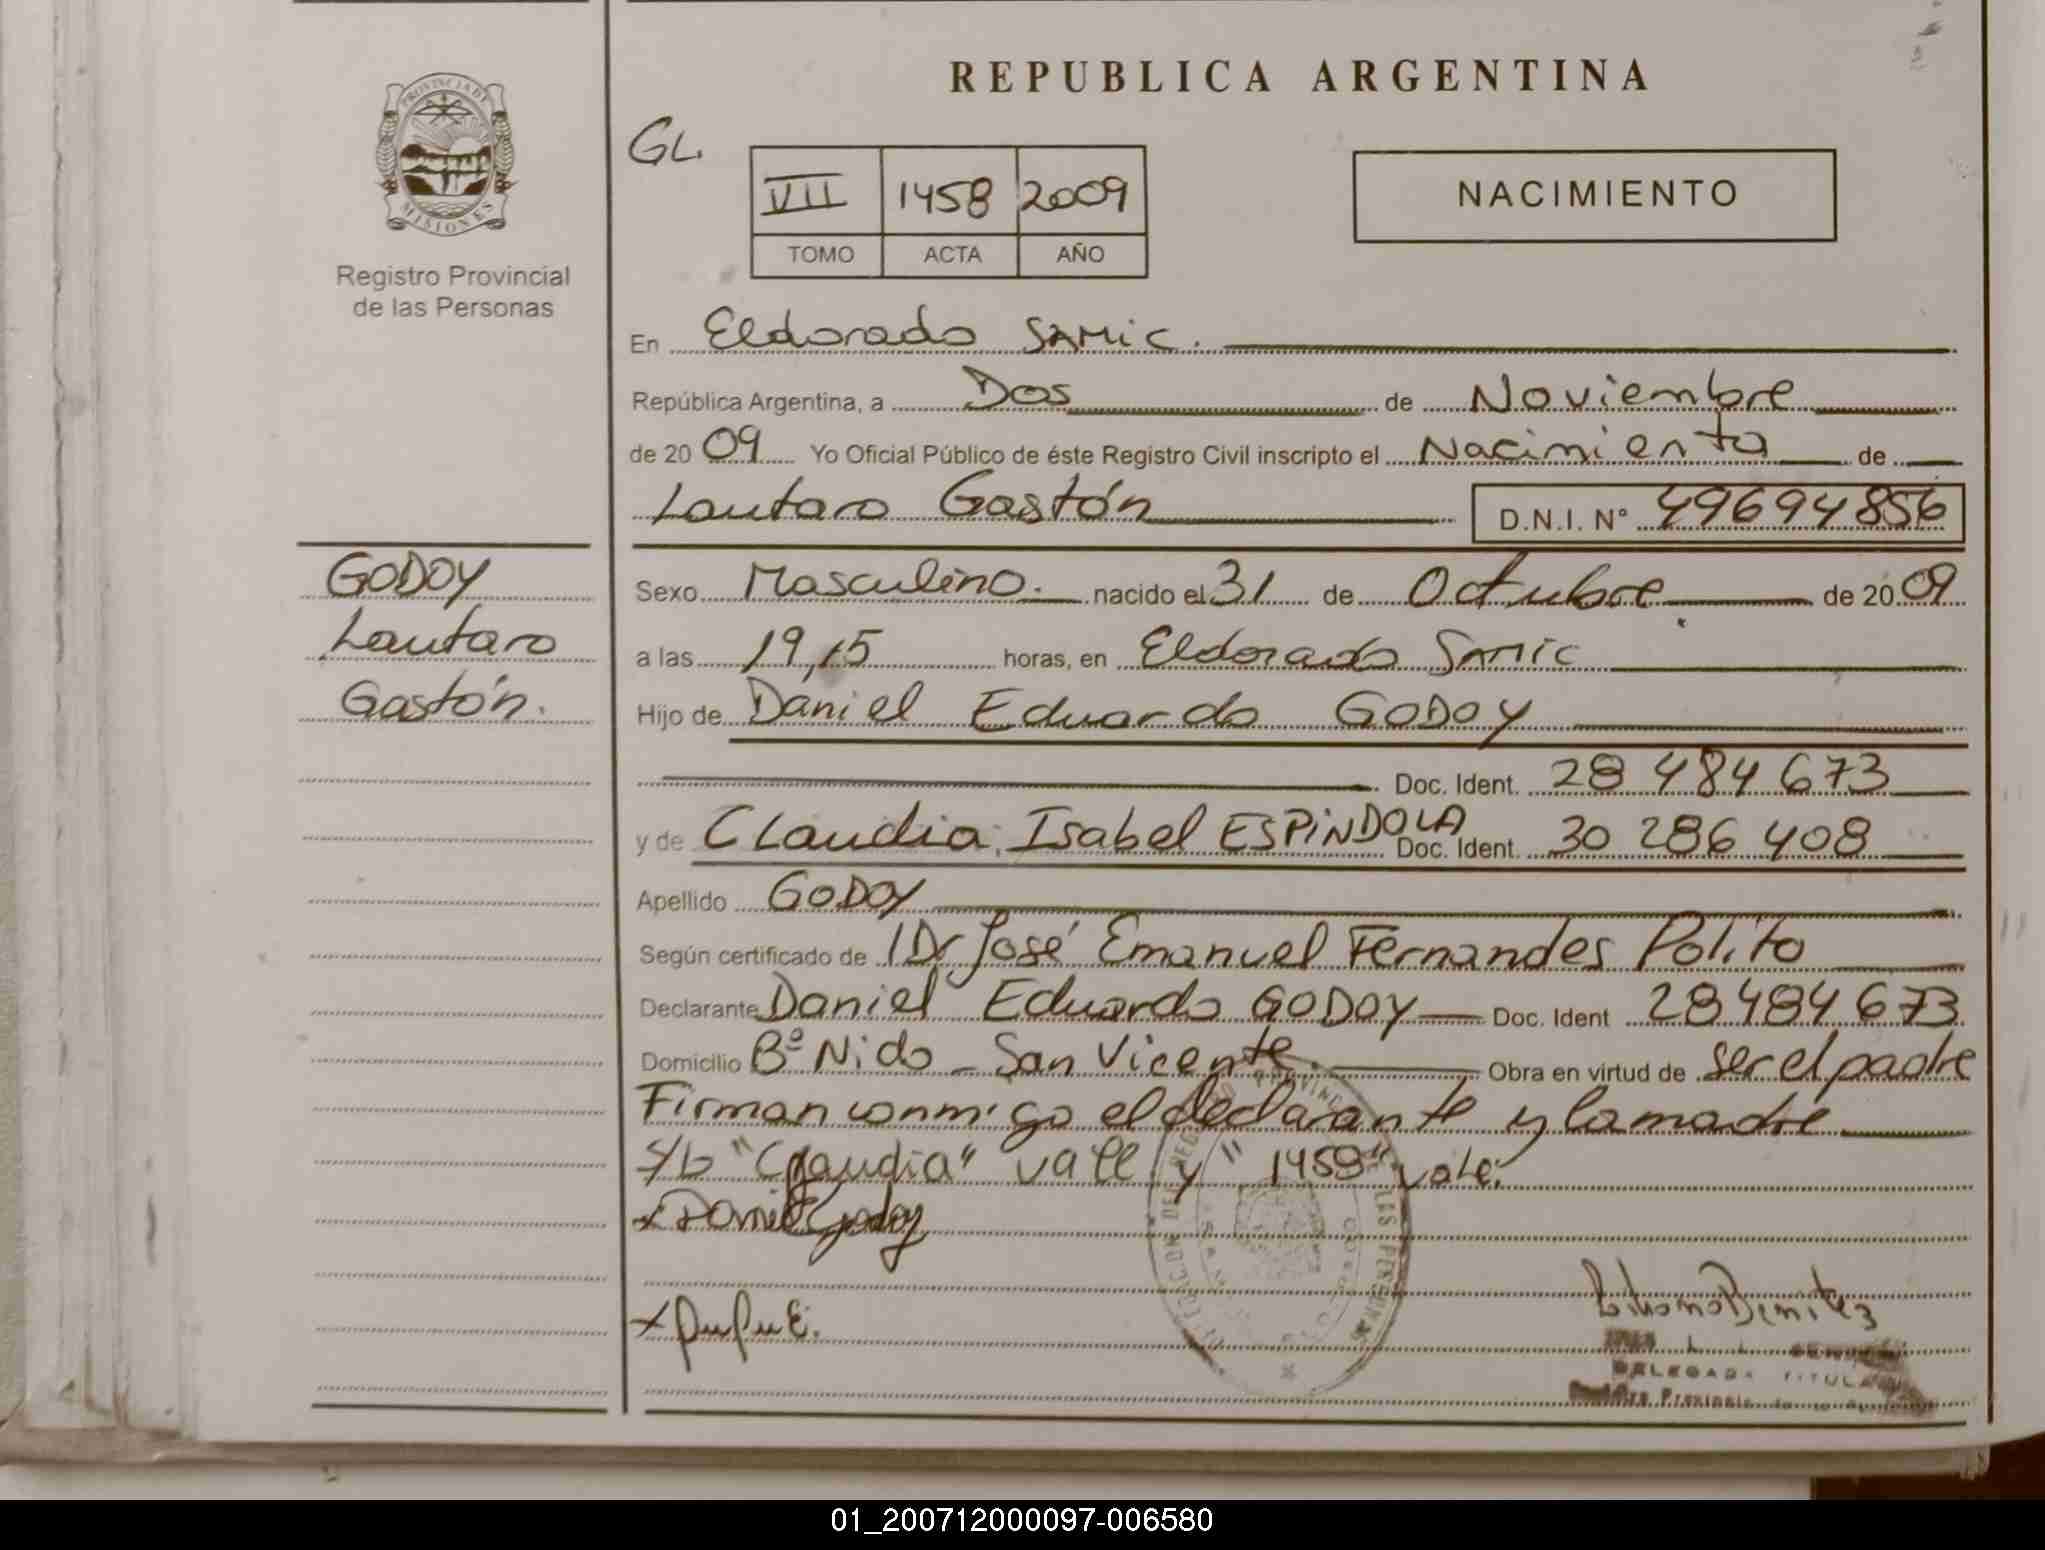 REPUBLICA ARGENTINA
PROVINCIA DE
MISIONES
Registro Provincial
de las Personas
GL.
VII 1458 2009
TOMO ACTA AÑO
NACIMIENTO
En Eldorado SAMIC.
República Argentina, a Dos de Noviembre
de 2009 Yo Oficial Público de éste Registro Civil inscripto el Nacimiento de
Lautaro Gastón D.N.I. N° 49694856
GODOY
Lautaro
Gastón.
Sexo Masculino. nacido el 31 de Octubre de 2009
a las 19,15 horas, en Eldorado SAMIC
Hijo de Daniel Eduardo GODOY
Doc. Ident. 28 484 673
y de Claudia Isabel ESPINDOLA Doc. Ident. 30 286 408
Apellido GODOY
Según certificado de Dr José Emanuel Fernandes Polito
Declarante Daniel Eduardo GODOY Doc. Ident 28484673
Domicilio Bº Nido - San Vicente. Obra en virtud de ser el padre
Firman conmigo el declarante y la madre
S/b "Claudia" vale y "1458" vale.
x Daniel Godoy
x
Benitez
DELEGADA TITULAR
01_200712000097-006580